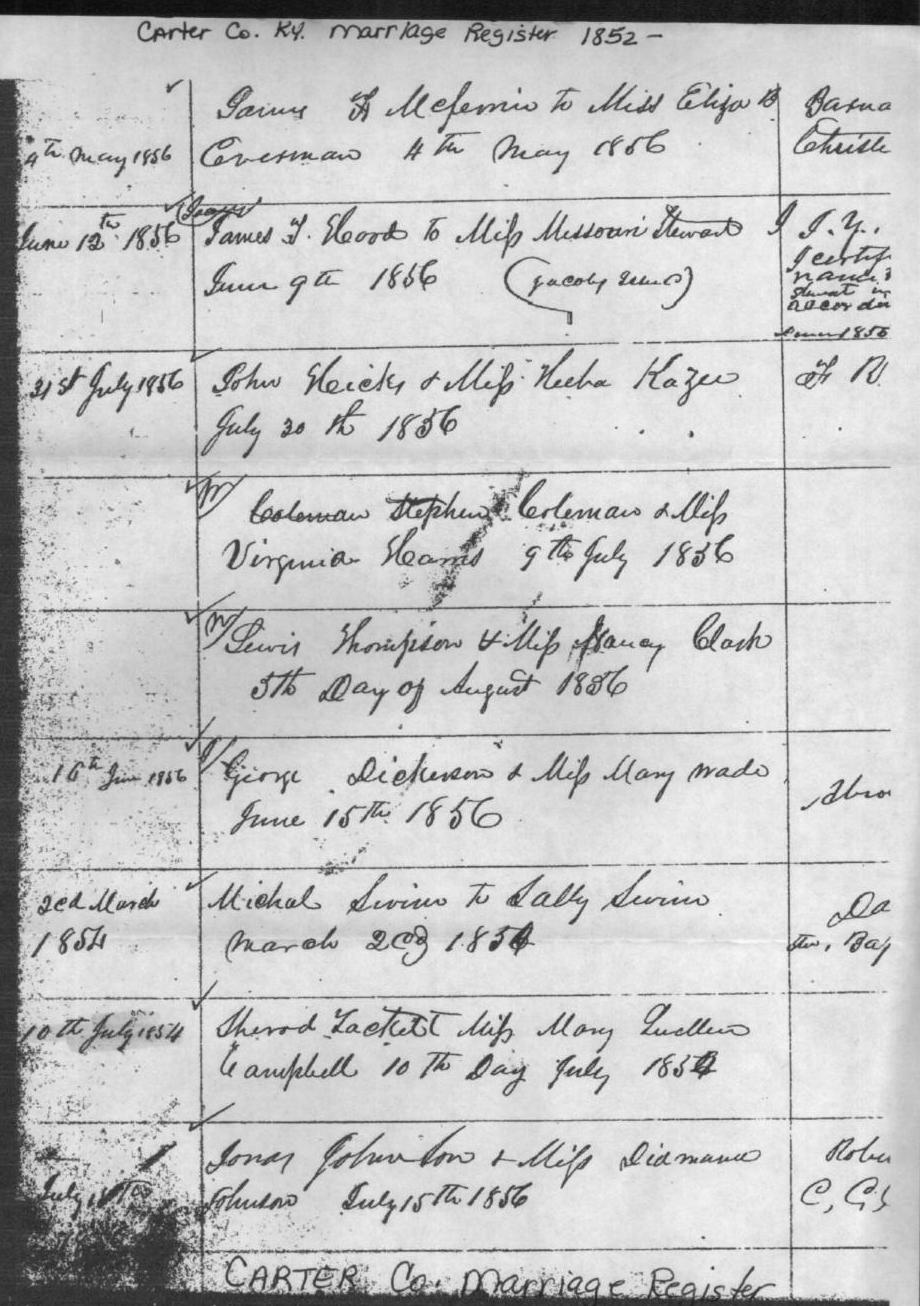 Carter Co. Ky. Marriage Register 1852 -
4th May 1856
James to Miss Eliza B
Everman 4th May 1856
Barna
Christe
June 12th 1856
James T. Hord to Miss Missouri Stewart
June 9th 1856
J. Y.,
I certif
31st July 1856
John Hicks & Miss Kazee
July 30th 1856
F R
Coleman Stephen Coleman & Miss
Virginia Harris 9th July 1856
Lewis Thompson & Miss Nancy Clark
5th Day of August 1856
16th June 1856
George Dickerson & Miss Mary Wade
June 15th 1856
Abro
2cd March
1854
Michal to Sally
March 2cd 1854
Da
Bay
10th July 1854
Sherod Tackett Miss Mary
Campbell 10th Day July 1854
Jonas Johnson & Miss Didmama
Johnson July 15th 1856
July
Rober
C, C,
CARTER Co. Marriage Register